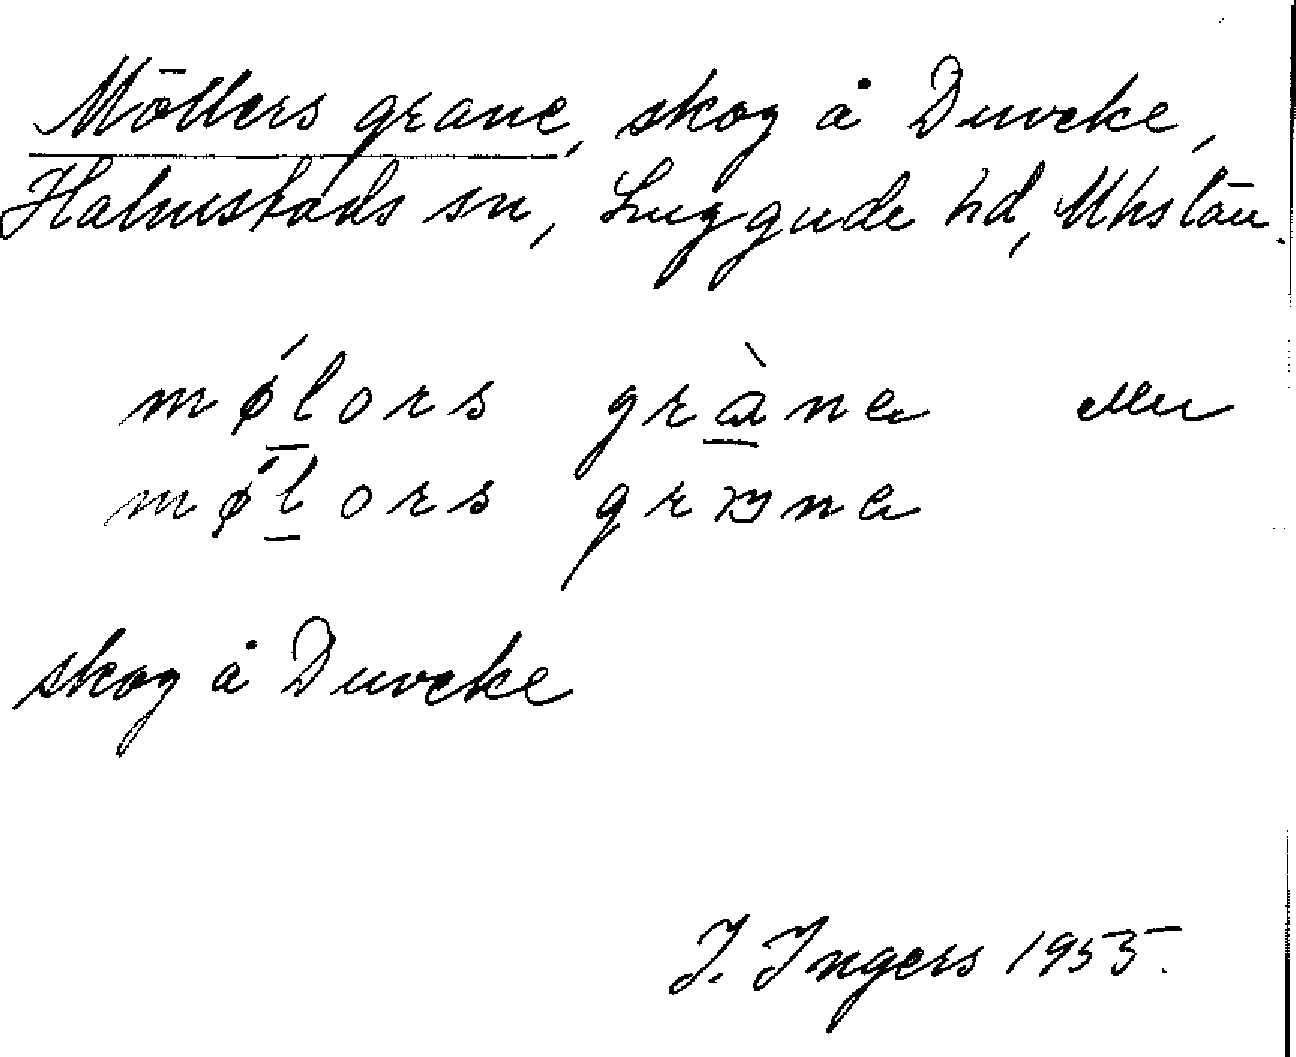 Möllers grane, skog å Duveke,
Halmstads sn, Luggude hd, Mhs län.
mǿlors gràna eller
mø̄́lors grana
skog å Duveke
I. Ingers 1955.